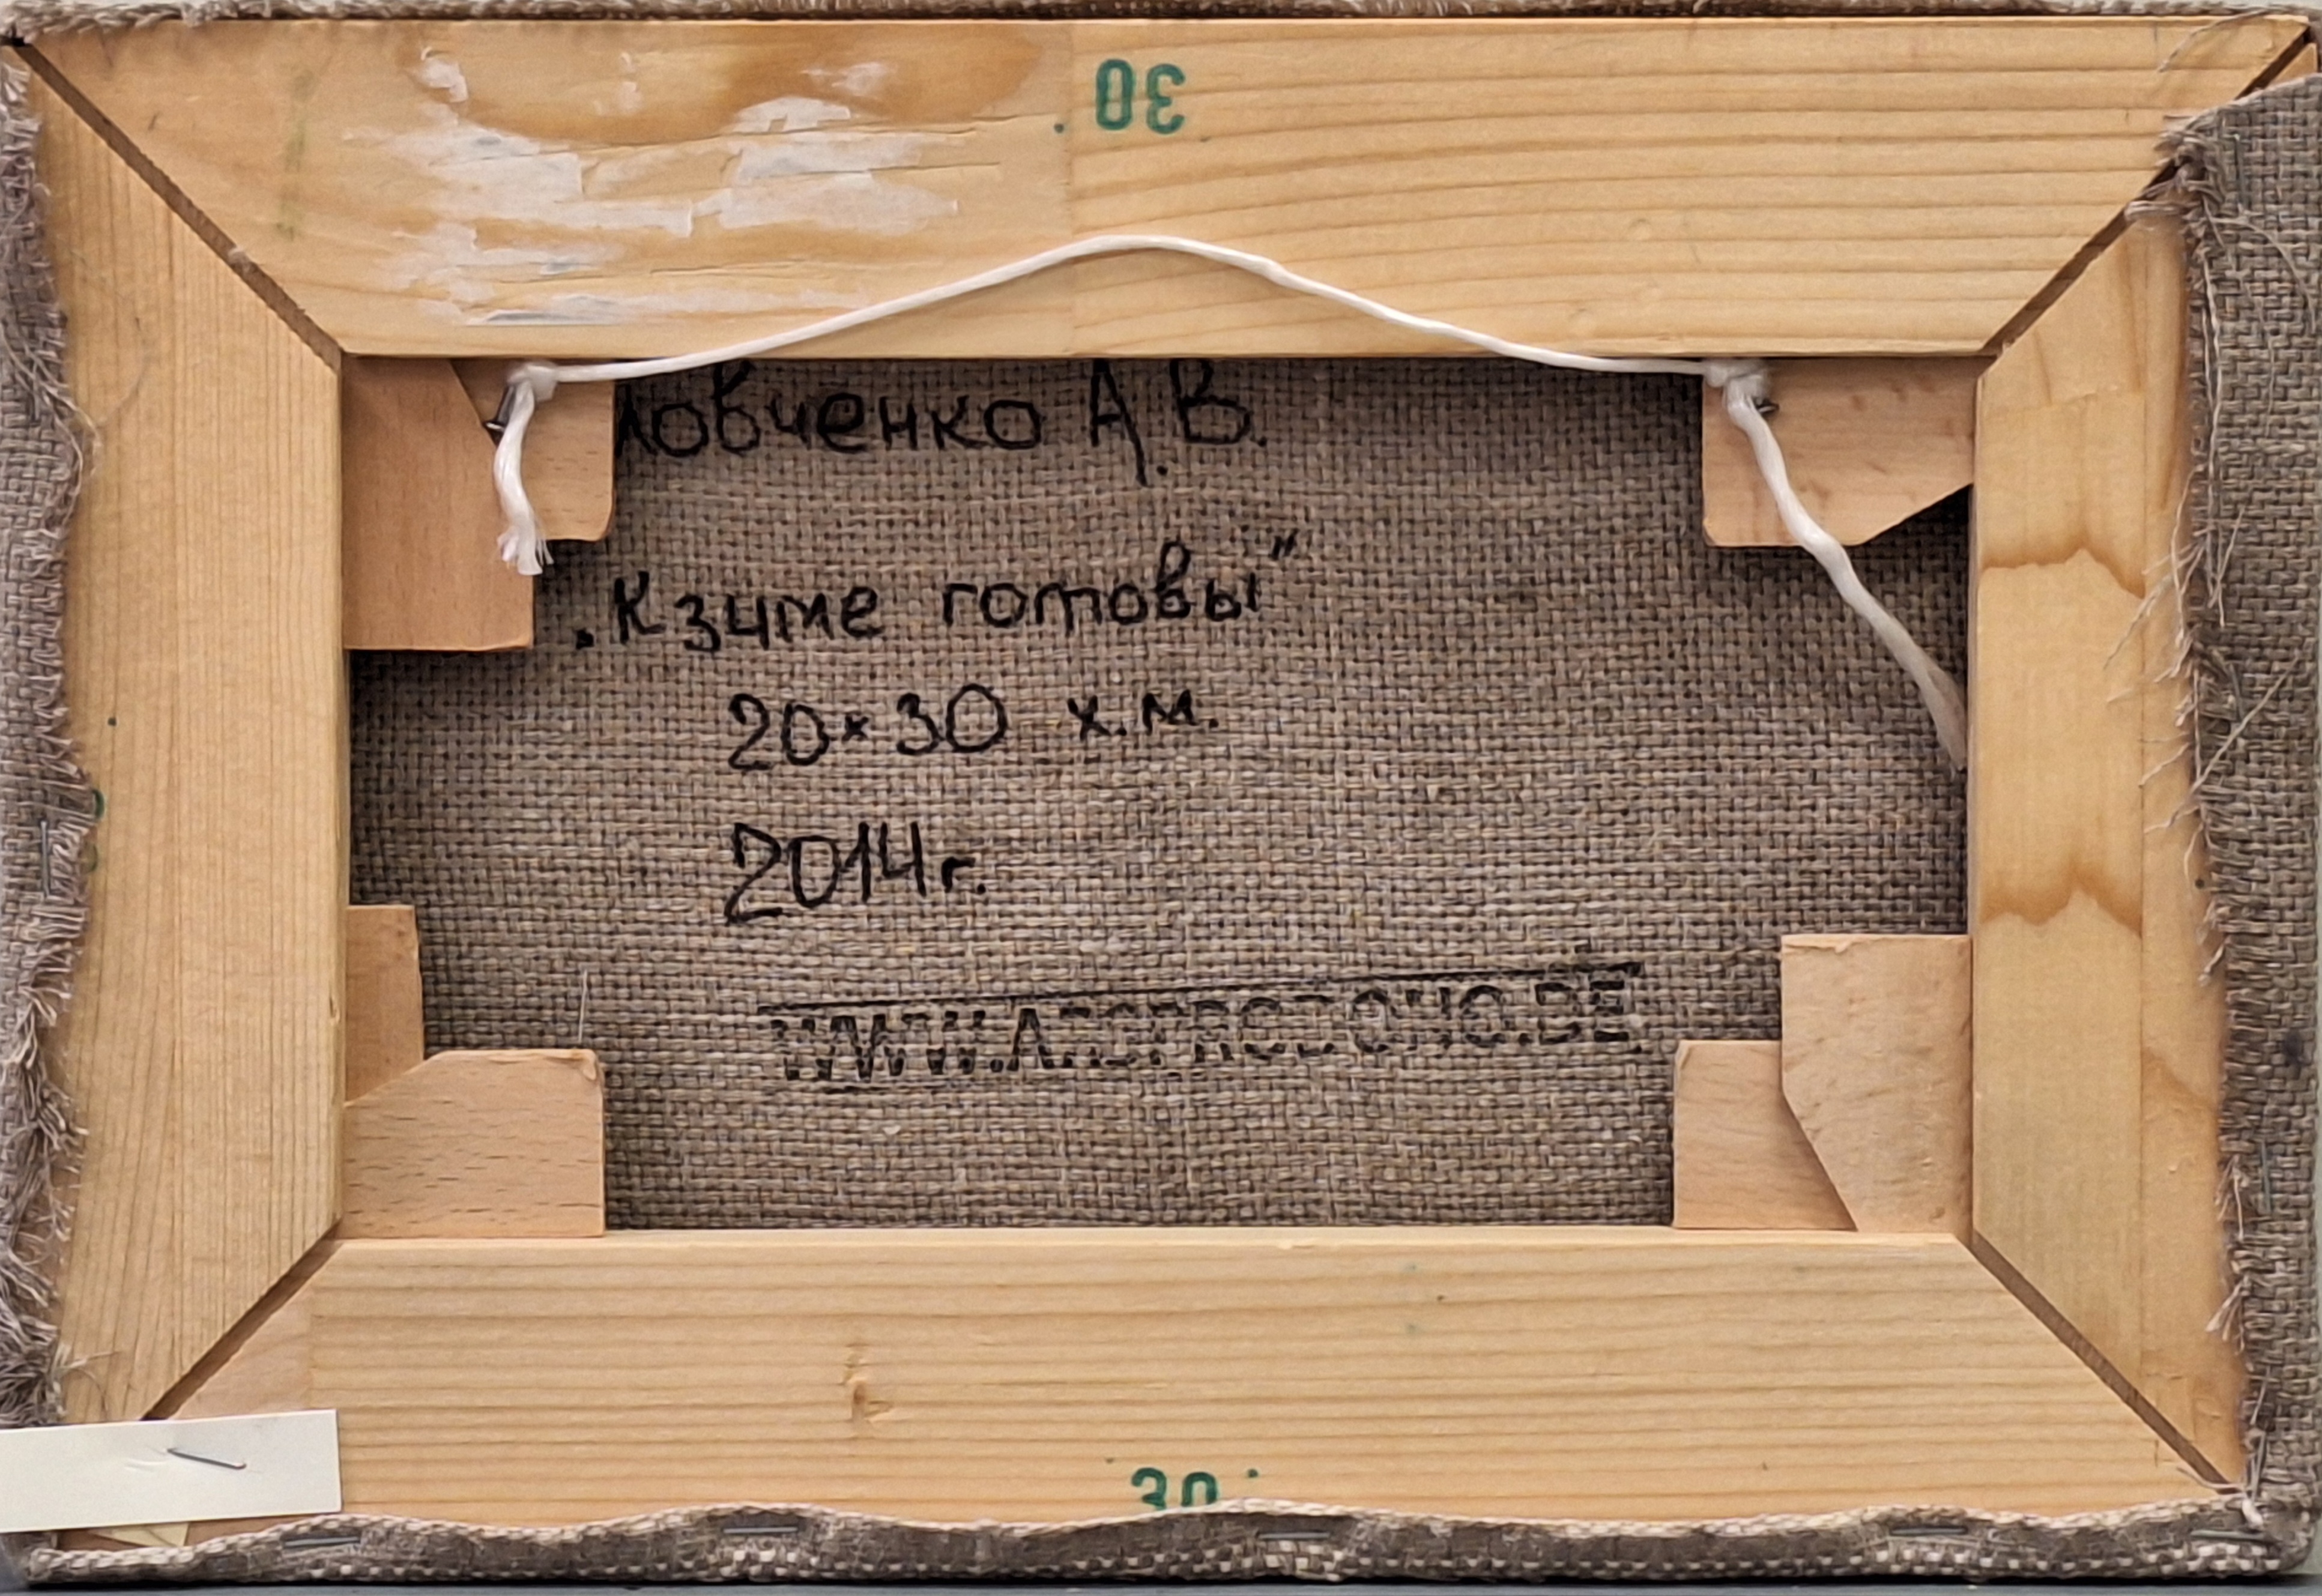 30
ловченко А.В.
„К зиме готовы"
20×30 х.м.
2014г.
30